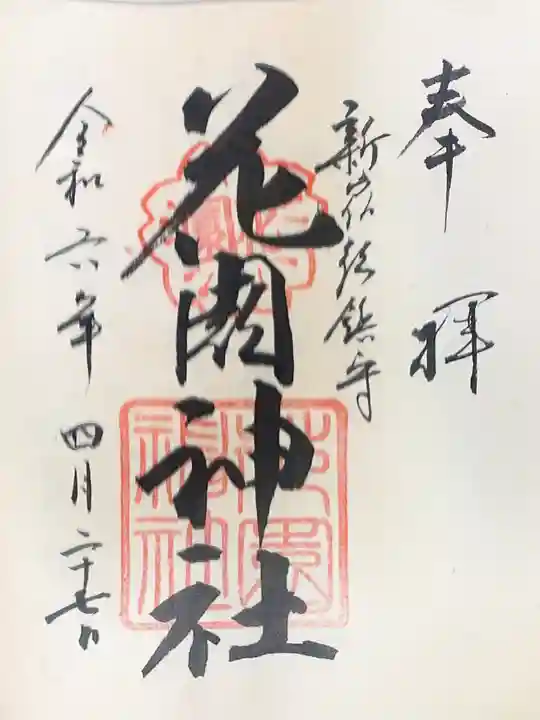 奉拝
新宿総鎮守
花園神社
花園
花園神社
令和六年四月二十七日